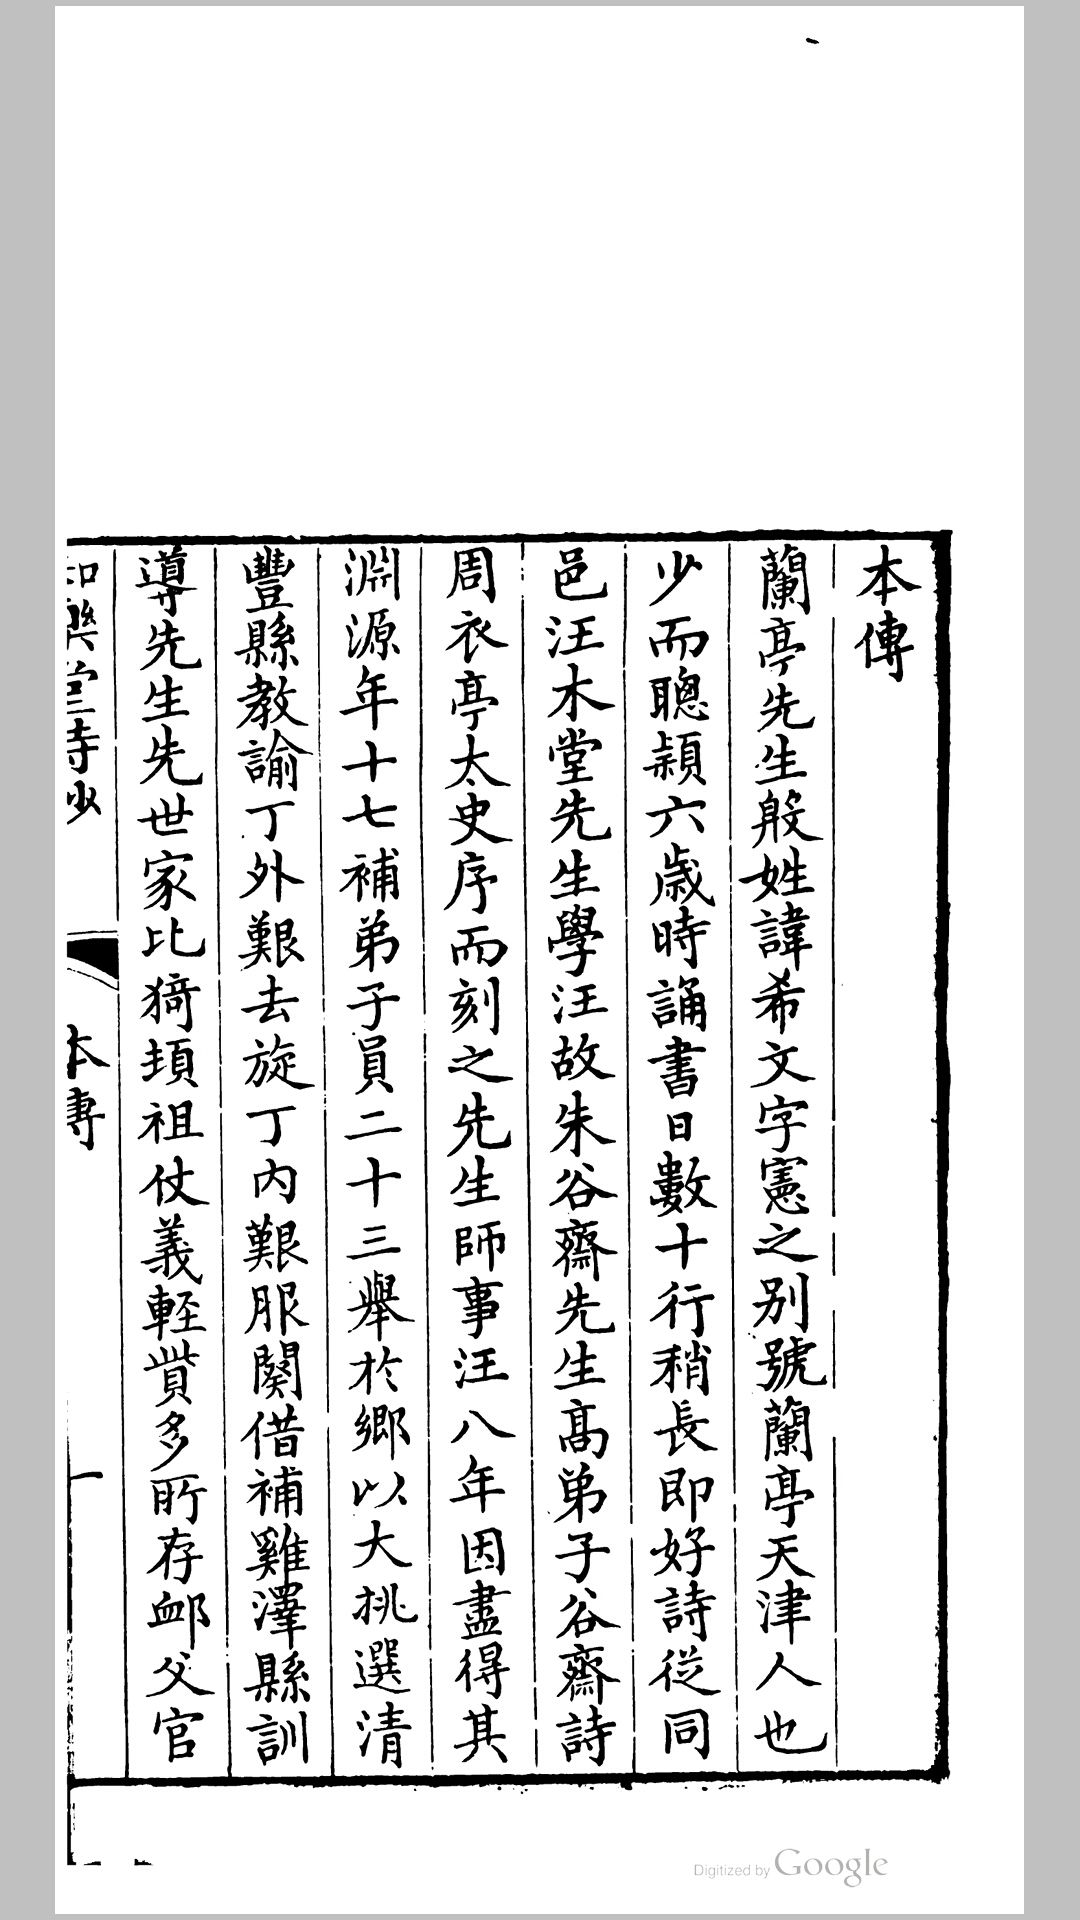 本傳
蘭亭先生殷姓諱希文字憲之别號蘭亭天津人也
少而聰穎六歲時誦書日數十行稍長即好詩從同
邑汪木堂先生學汪故朱谷齋先生髙弟子谷齋詩
周衣亭太史序而刻之先生師事汪八年因盡得其
淵源年十七補弟子員二十三舉於鄉以大挑選清
豐縣教諭丁外艱去旋丁內艱服闋借補雞澤縣訓
導先生先世家比猗頓祖仗義輕貲多所存卹父官
和樂堂詩鈔
本傳
一
Digitized by Google